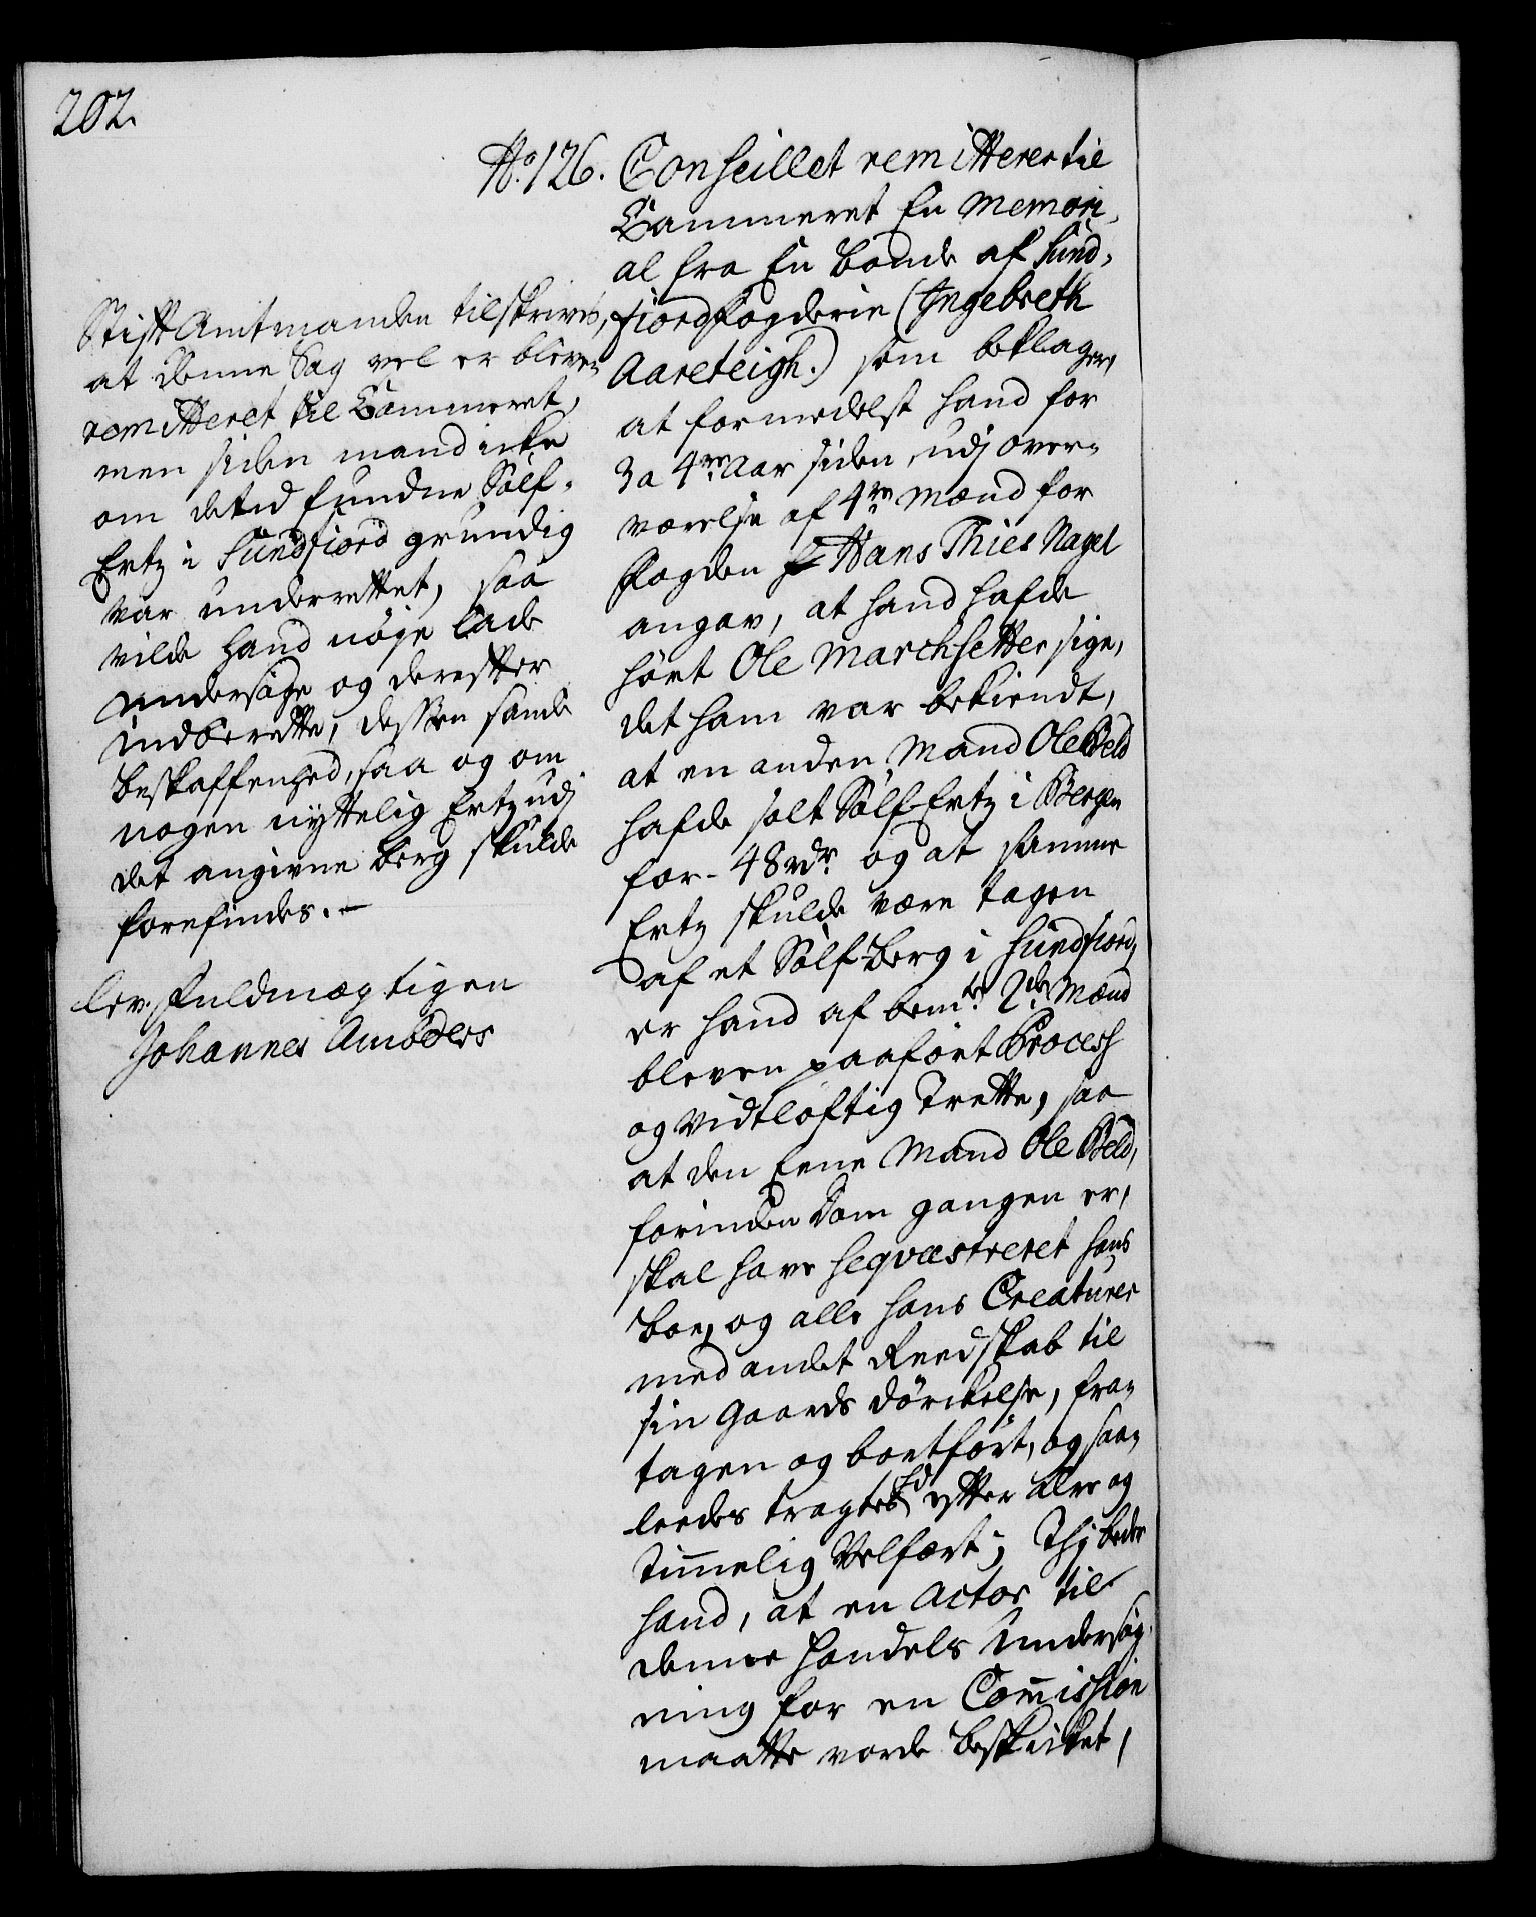 202.
No. 126. Conseillet remitterer til
Cammeret En Memori,
al fra En bonde af Sund,
fiord fogderie (Ingebreth
Aareteigh.) som beklager,
at formedelst hand for
3 a 4re Aar siden, udj over,
værelse af 4re Mænd for
fogden Hans Thies Nagel
angav, at hand hafde
hört Ole Marchsetter sige,
det ham var bekiendt,
at en anden Mand Ole Beld
hafde solt Sölf Ertz i Bergen
for - 48 rdr. og at samme
Ertz skulde være tagen
af et Sölf-berg i Sundfiord,
er hand af bemte. 2de Mænd
bleven paafört Process
og vidtlöftig Trette, saa
at den Eene Mand Ole Beld,
forinden Dom gangen er,
skal have seqvæstreret hans
boe, og alle hans Creaturer
med andet Reedskab til
sin Gaards dörckelse, fra,
tagen og bortfört, og saa,
leedes tragtet hd efter ære og
Timelig Velfært; Thj beder
hand, at en Actor til
denne Handels Undersög,
ning for en Comission
maatte vorde beskicket,
Stift Amtmanden tilskrives,
at denne Sag vel er bleven
remitteret til Cammeret,
men siden mand icke
om det ud fundne Sölf,
Ertz i Sundfiord grundig
var underrettet, saa
vilde hand nöje lade
undersöge og derefter
indberette, dessen sande
beskaffenhed, saa og om
nogen nyttelig Ertz udj
det angivne berg skulde
forefindes. -
lev. Fuldmægtigen
Johannes Ambders